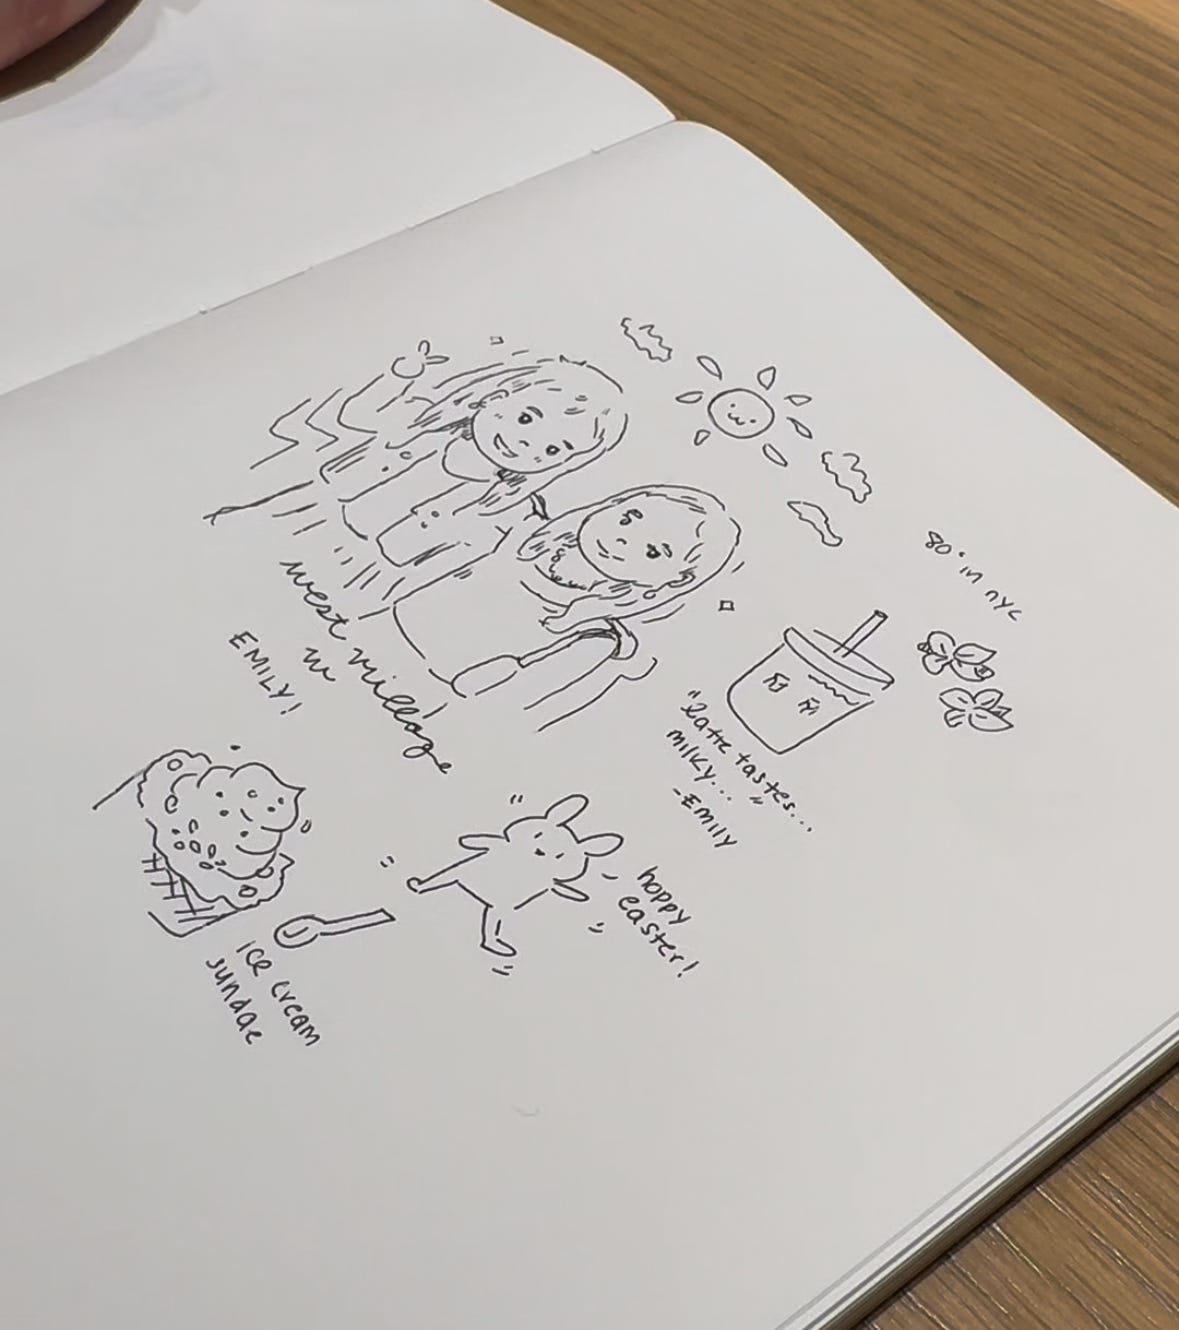 80° in nyc
west village
w
EMILY!
"latte tastes...
milky..."
-EMILY
hoppy
easter!
ice cream
sundae